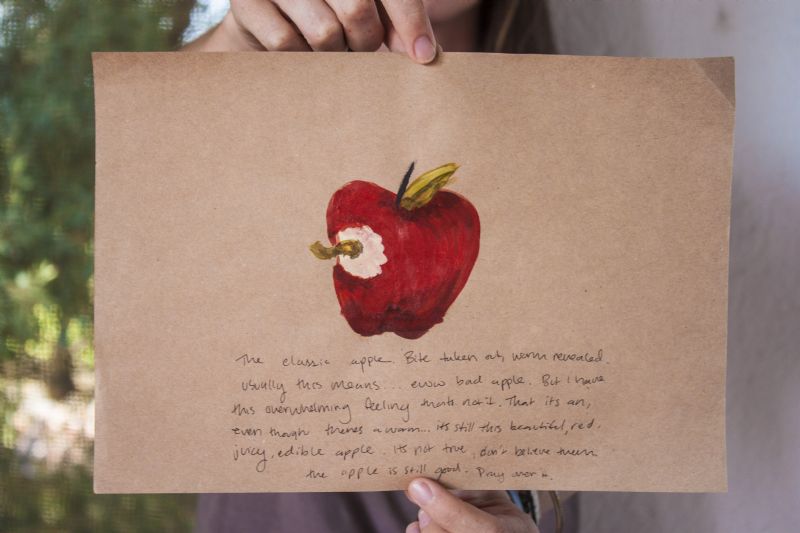 The classic apple. Bite taken out, worm revealed.
usually this means... eww bad apple. But i have
this overwhelming feeling thats not it. That its an,
even though theres a worm... its still this beautiful, red,
juicy, edible apple. its not true, don't believe them
the apple is still good. Pray over it.